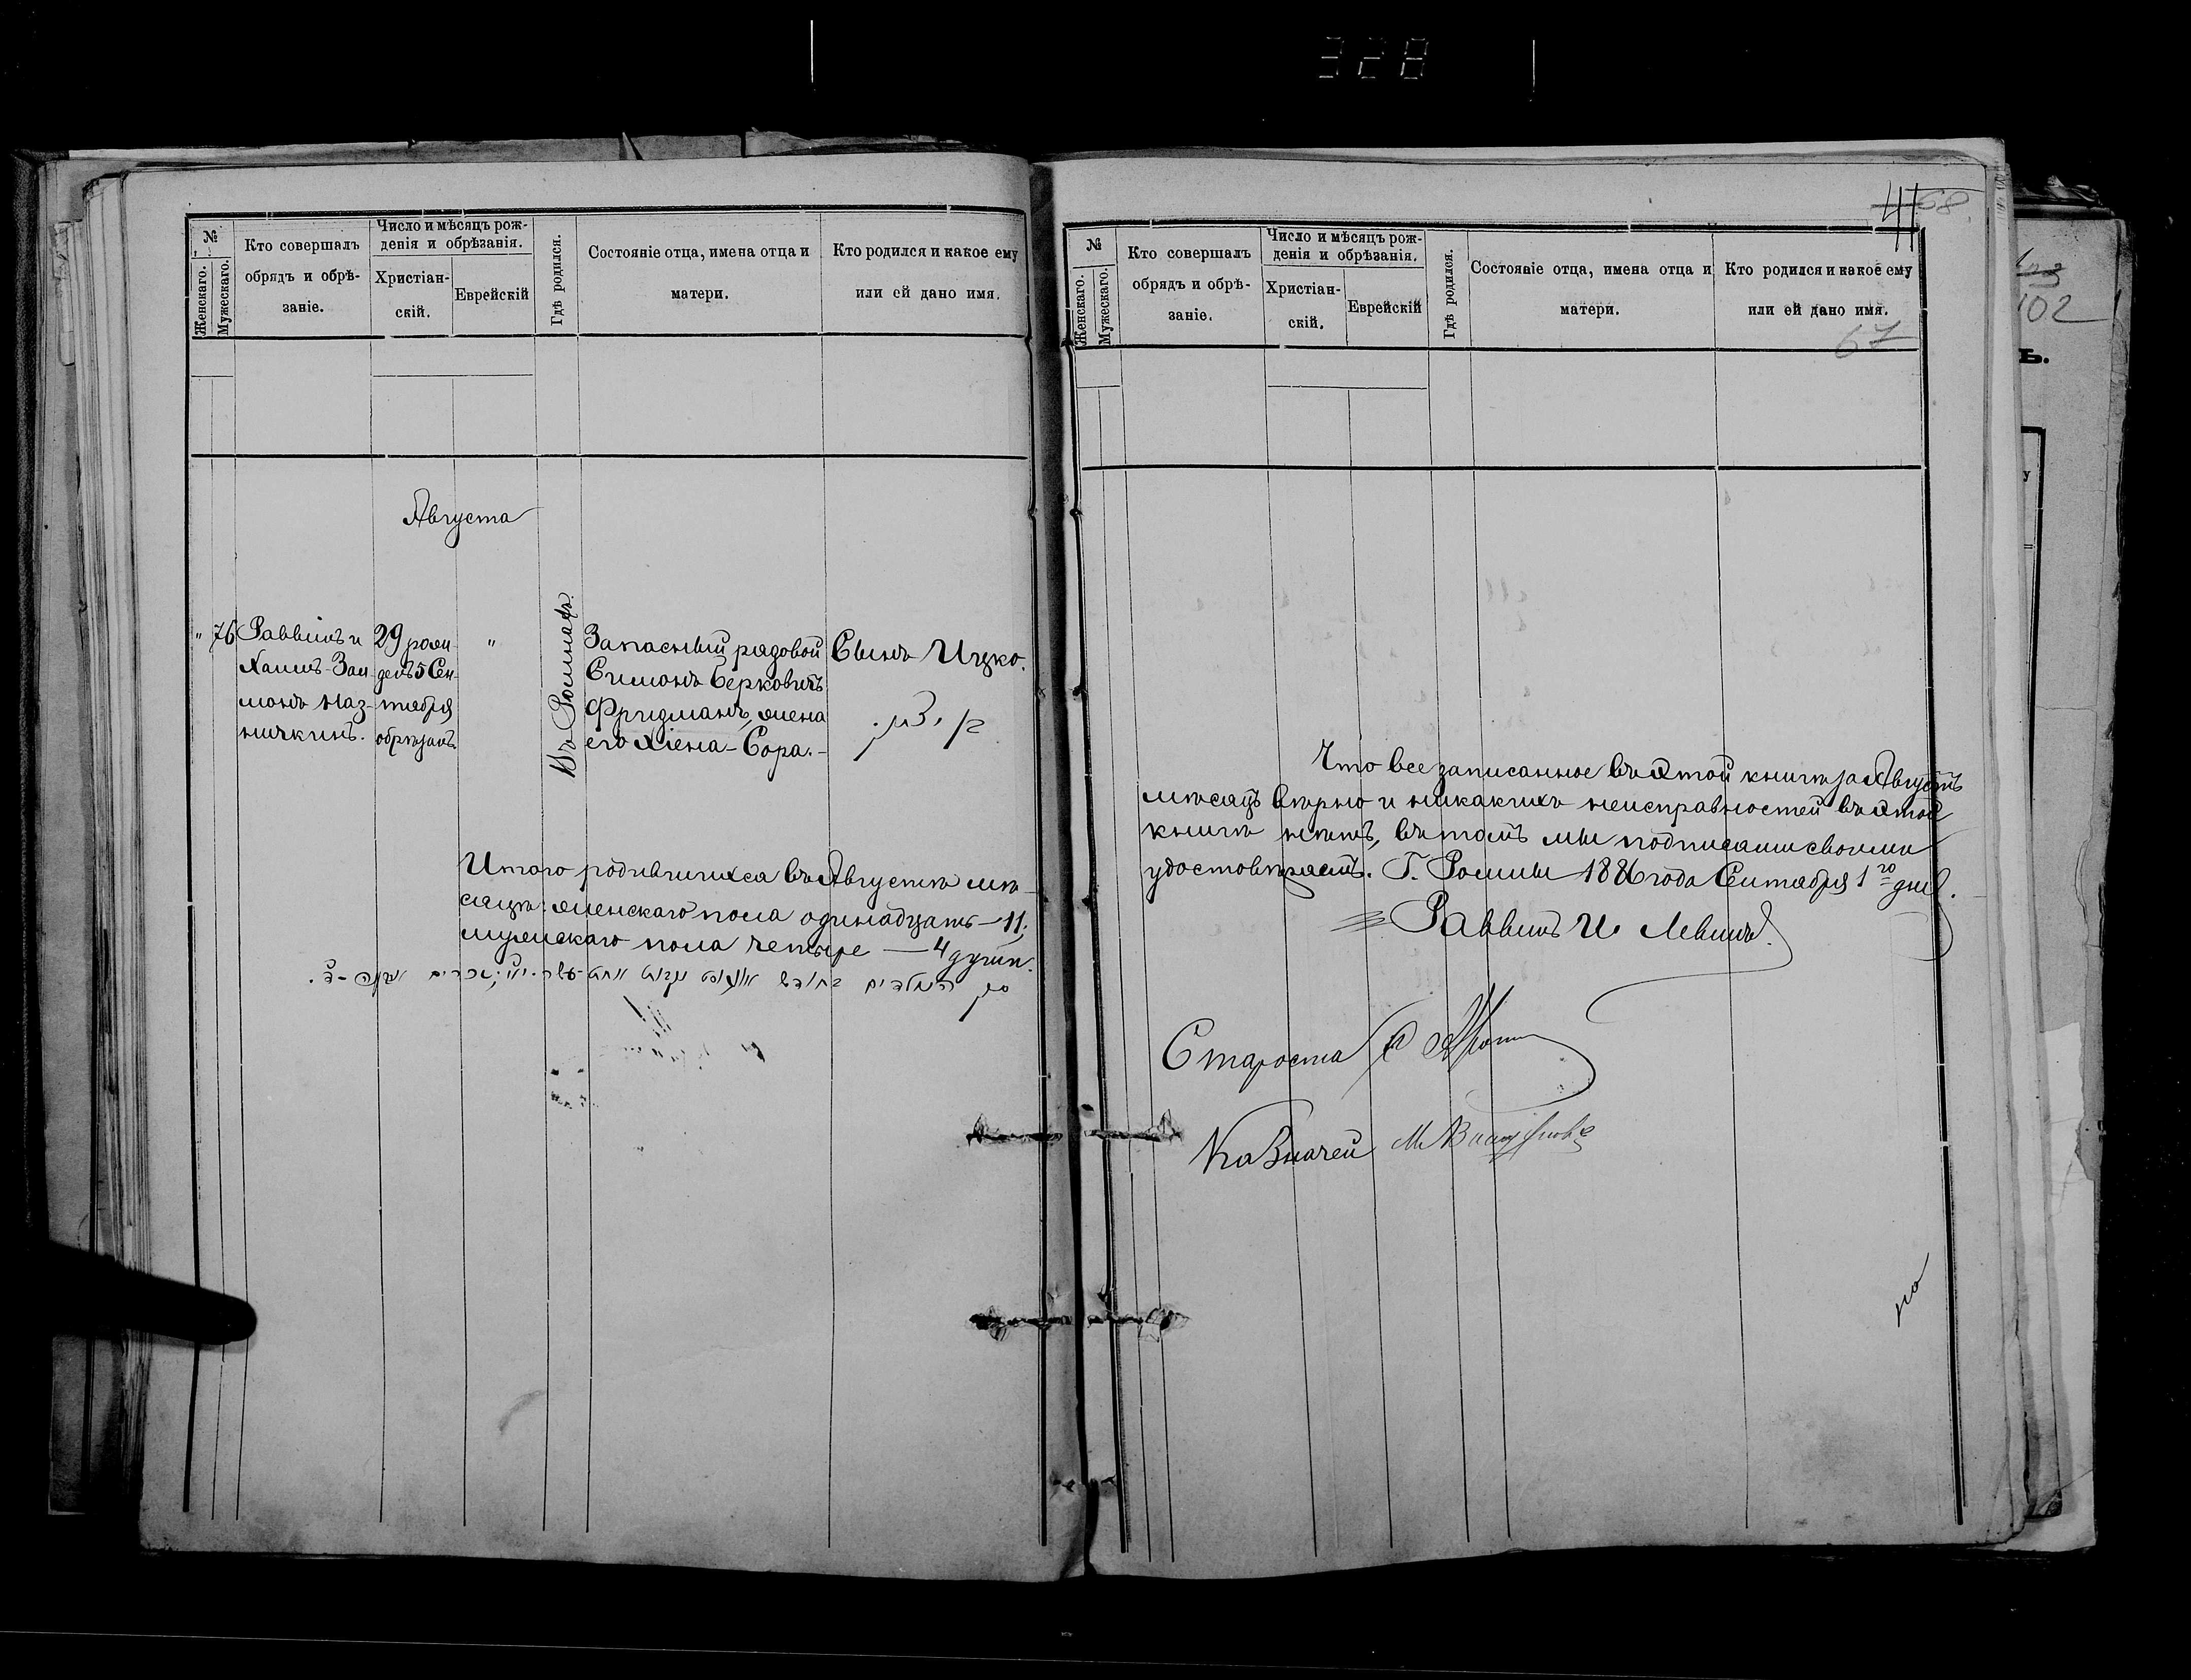 328
№
Женскаго.
Мужескаго.
Кто совершалъ
обрядъ и обрѣ-
заніе.
Число и мѣсяцъ рож-
денія и обрѣзанія.
Христіан-
скій.
Еврейскій
Гдѣ родился.
Состояніе отца, имена отца и
матери.
Кто родился и какое ему
или ей дано имя.
Августа
"
76
Раввинъ и
Хаимъ-Зал-
монъ Наз-
ничкинъ.
29 рож-
денъ 5 Сен-
тября
обрѣзанъ.
"
Въ Ромнахъ.
Запасный рядовой
Симонъ Берковичъ
Фридманъ, жена
его Хіена-Сора.-
Сынъ Ицко.
Итого родившихся въ Августѣ мѣ-
сяцѣ: женскаго пола одинадцать — 11;
мужскаго пола четыре — 4 души.
41
68.
№
Женскаго.
Мужескаго.
Кто совершалъ
обрядъ и обрѣ-
заніе.
Число и мѣсяцъ рож-
денія и обрѣзанія.
Христіан-
скій.
Еврейскій
Гдѣ родился.
Состояніе отца, имена отца и
матери.
Кто родился и какое ему
или ей дано имя.
67
Что все записанное въ этой книгѣ за Августъ
мѣсяцъ вѣрно и никакихъ неисправностей въ этой
книгѣ нѣтъ, въ томъ мы подписами своими
удостовѣряемъ. Г. Ромны 1886 года Сентября 1го дня.
Раввинъ И. Левинъ.
Староста
Казначей М
102
Ъ.